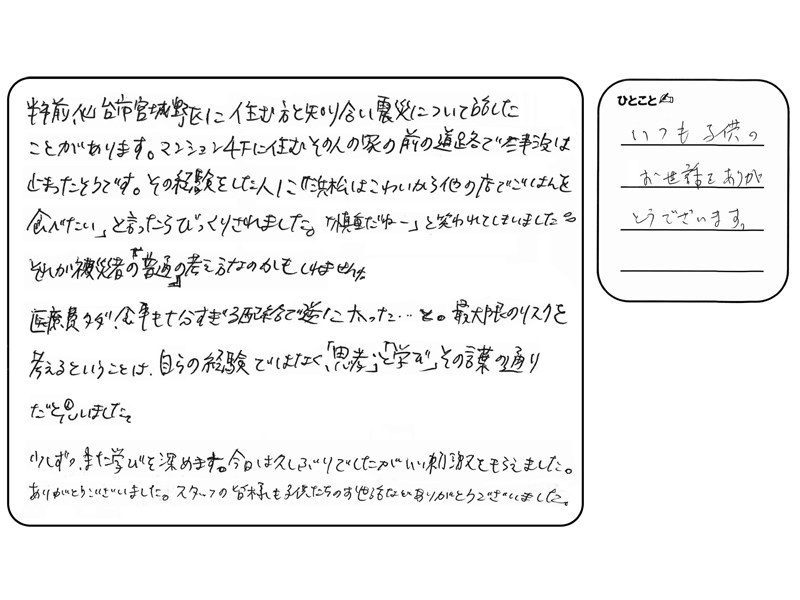 半年前、仙台市宮城野区に住む方と知り合い震災について話した
ことがあります。マンション4Fに住むその人の家の前の道路で 波は
止まったそうです。その経験をした人に「浜松はこわいから他の店でごはんを
食べたい」と言ったらびっくりされました。「慎重だねー」と笑われてしまいました。
それが被災者の『普通』の考え方なのかもしれません。
医療費タダ、食事も十分すぎる配給で逆に太った…と。最大限のリスクを
考えるということは、自らの経験ではなく、「思考」と「学び」、その言葉の通り
だと思いました。
少しずつ、また学びを深めます。今日は久しぶりでしたがいい刺激をもらえました。
ありがとうございました。スタッフの皆様も子供たちのお世話などありがとうございました。
ひとこと
いつも子供の
お世話をありが
とうございます。